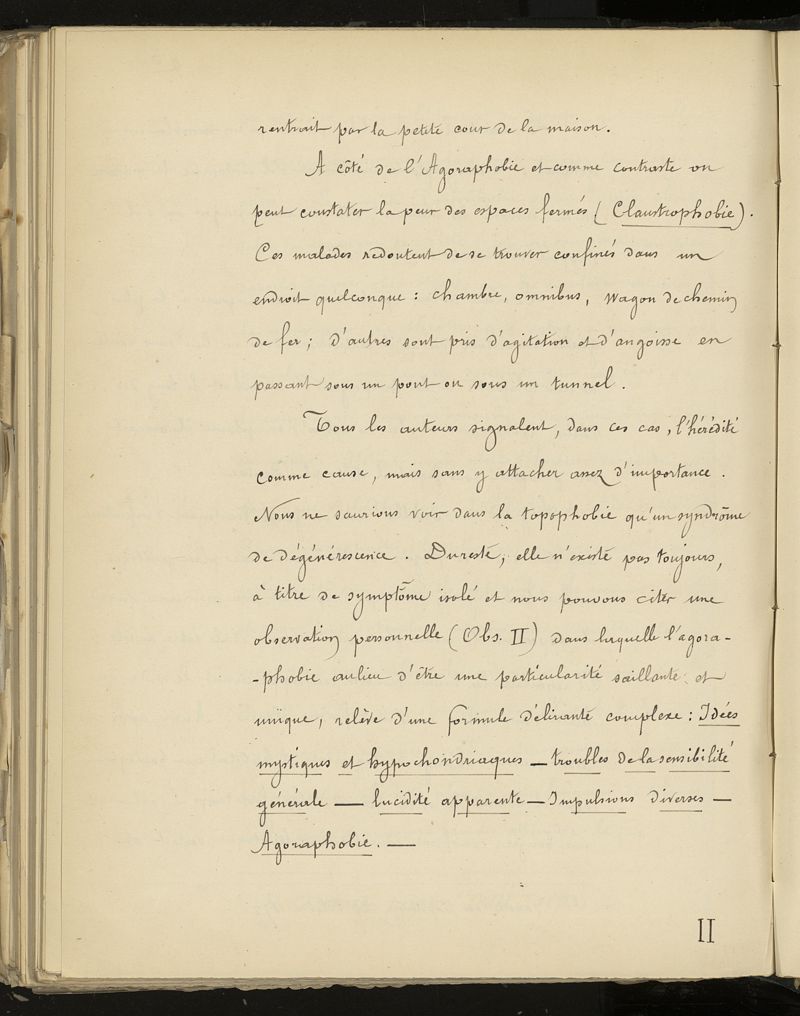 rentrait par la petite cour de la maison.
A côté de l'Agoraphobie et comme contraste on
peut constater la peur des espaces fermés (Claustrophobie).
Ces malades redoutent de se trouver confinés dans un
endroit quelconque : chambre, omnibus, wagon de chemin
de fer ; d'autres sont pris d'agitation et d'angoisse en
passant sous un pont ou sous un tunnel.
Tous les auteurs signalent, dans ces cas, l'hérédité
comme cause, mais sans y attacher assez d'importance.
Nous ne saurions voir dans la topophobie qu'un syndrôme
de dégénérescence. Du reste, elle n'existe pas toujours,
à titre de symptôme isolé et nous pouvons citer une
observation personnelle (Obs. II) dans laquelle l'agora-
-phobie au lieu d'être une particularité saillante et
unique, relève d'une formule délirante complexe : Idées
mystiques et hypochondriaques — troubles de la sensibilité
générale — lucidité apparente — Impulsions diverses —
Agoraphobie. —
II